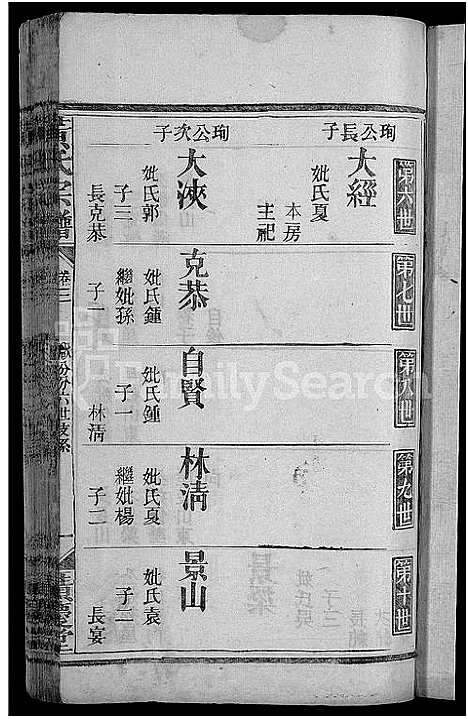 珣公長子
珣公次子
第六世
大經
妣氏夏
本房
主祀
大浹
妣氏郭
子三
長克恭
第七世
克恭
妣氏鍾
繼妣孫
子一
第八世
自賢
妣氏鍾
子一
林淸
第九世
林淸
妣氏夏
繼妣楊
子二
第十世
景山
妣氏袁
子二
長宴
氏宗譜
卷三
FamilySearch